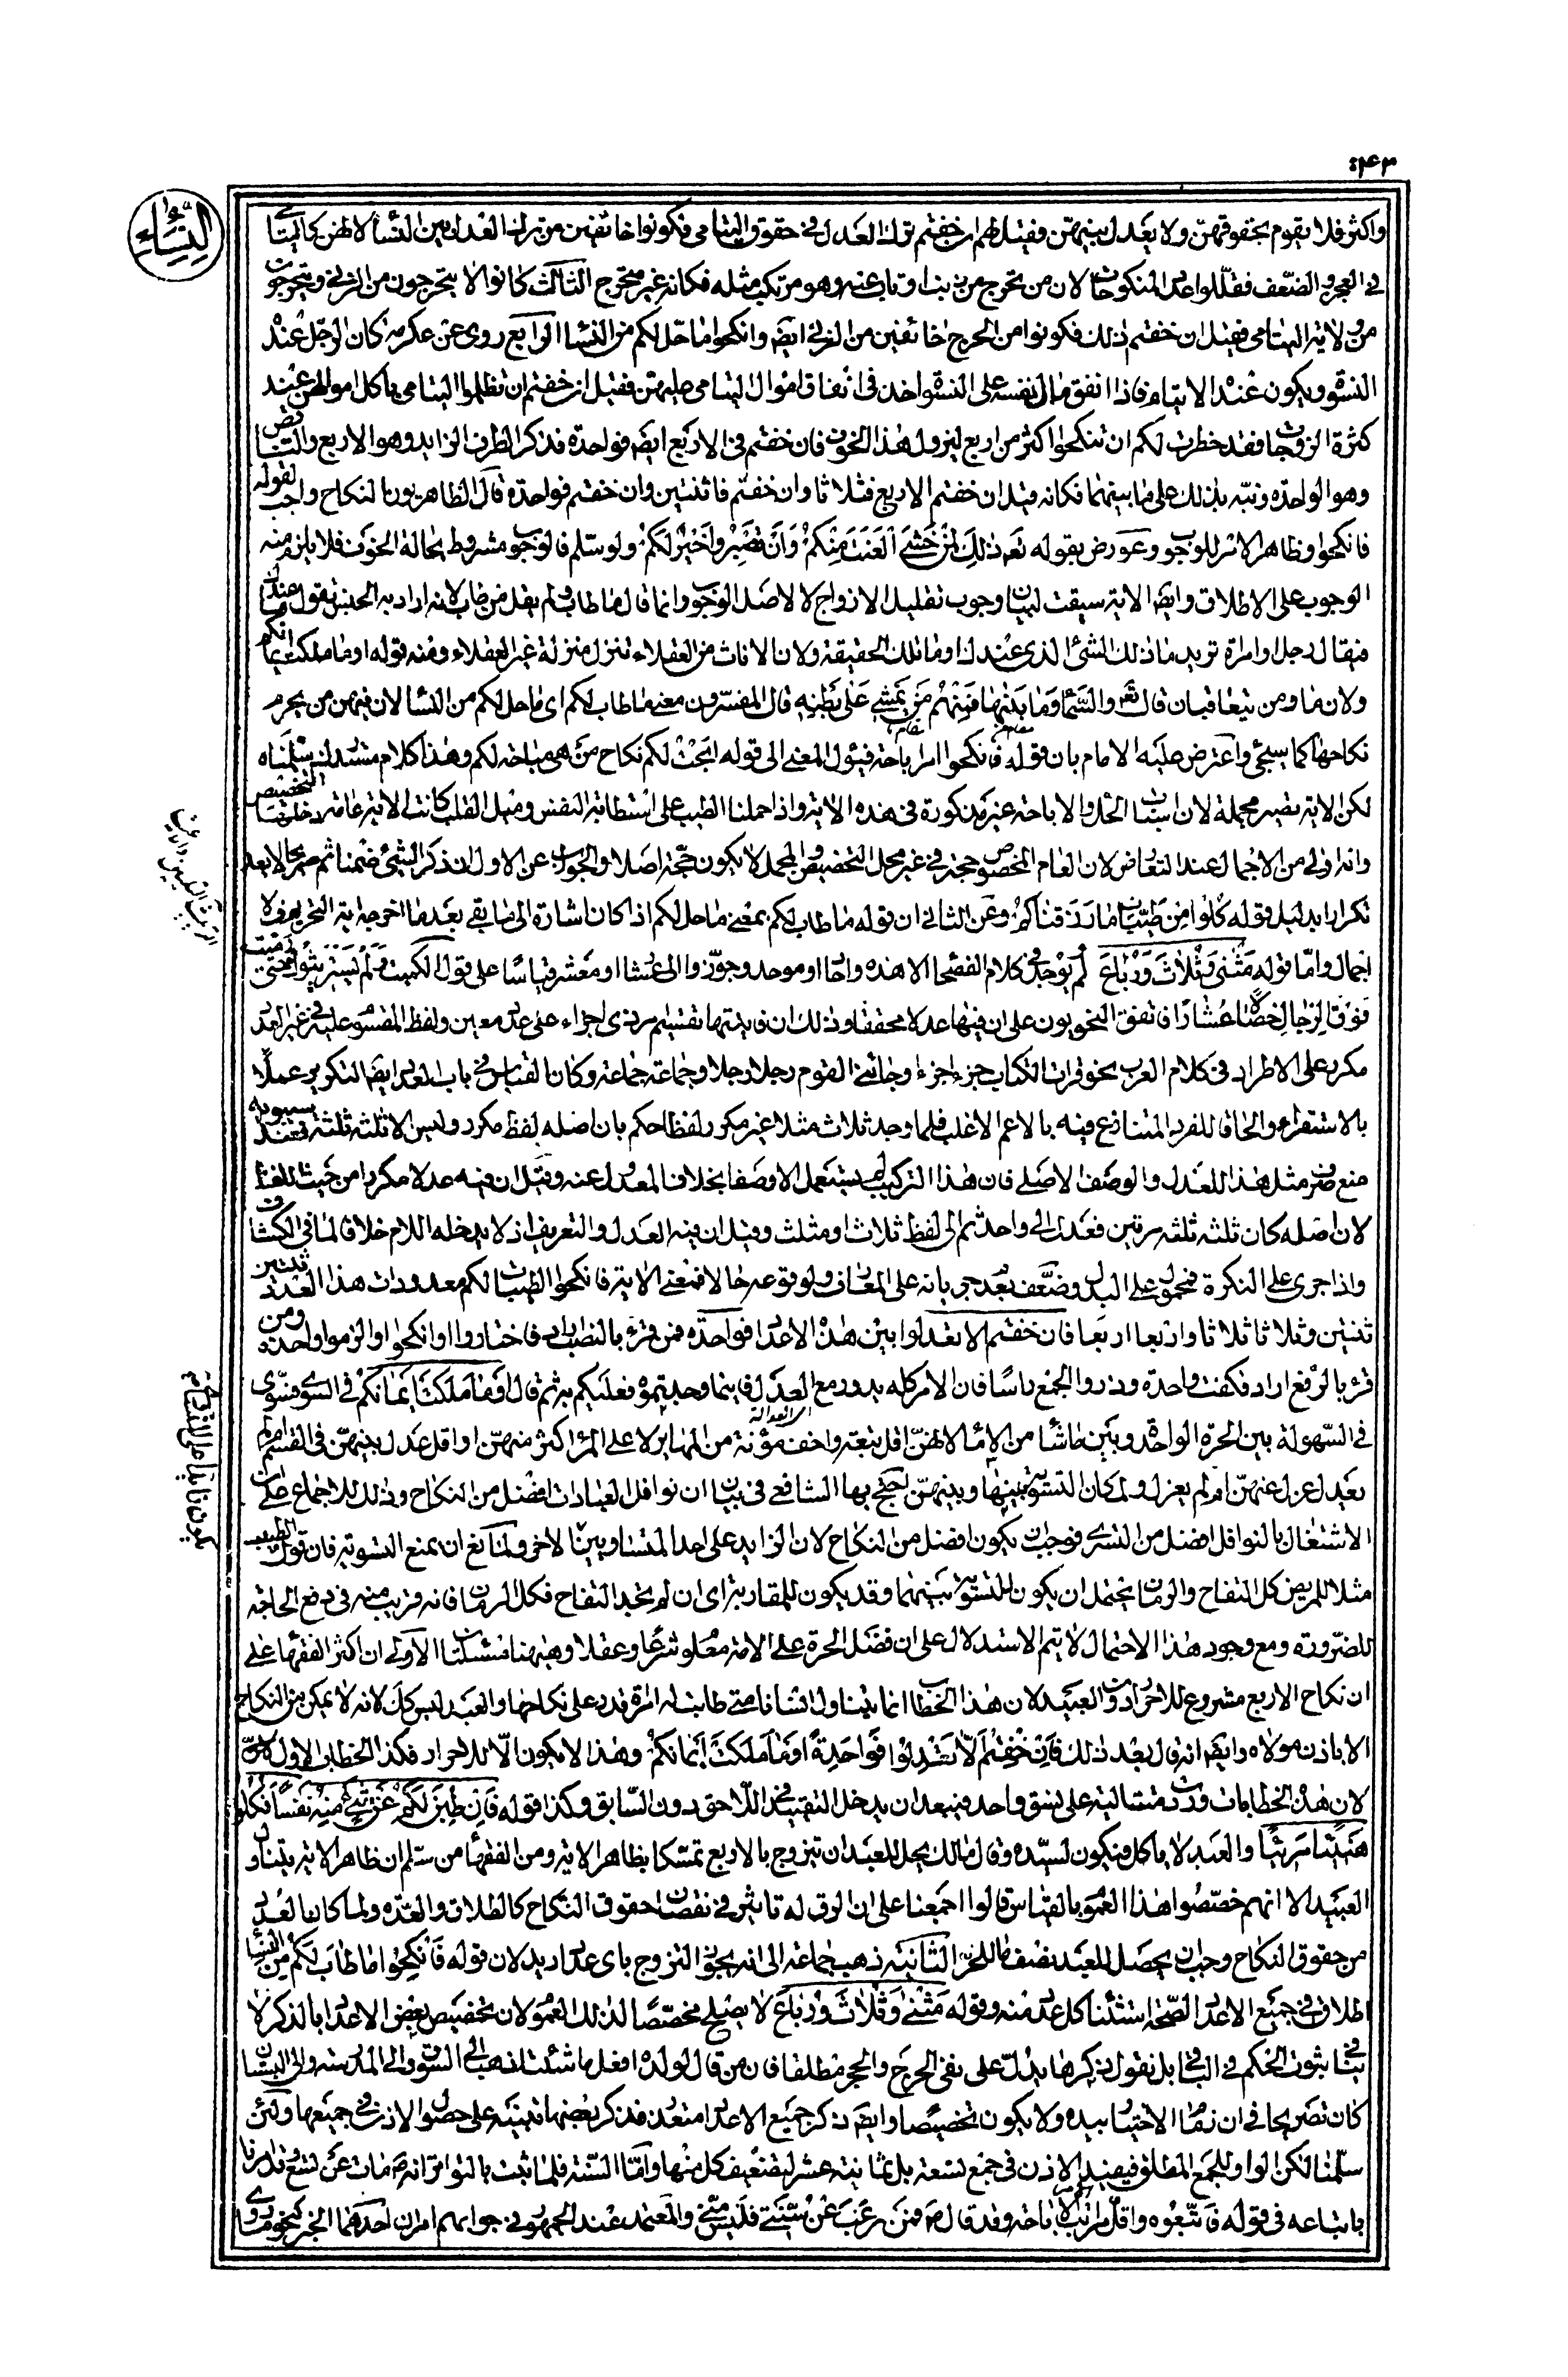 ٤٣:
النساء
واكثر فلا يقوم بحقوقهن ولا يعدل بينهن فقيل لهم ان خفتم ترك العدل في حقوق اليتامى فكونوا خائفين من ترك العدل بين النساء لانهن كاليتامى
في العجز والضعف فقللوا عدد المنكوحات لان من تحرج من ذنب او تاب عنه وهو مرتكب مثله فكانه غير متحرج الثالث كانوا لا يتحرجون من الزنى ويتحرجون
من ولاية اليتامى فقيل ان خفتم ذلك فكونوا من الحرج خائفين من الزنى ايضا وانكحوا ما حل لكم من النساء الرابع روى عن عكرمة كان الرجل عنده
النسوة ويكون عنده الايتام فاذا انفق مال نفسه على النسوة اخذ في انفاق اموال اليتامى عليهن فقيل ان خفتم ان تظلموا اليتامى باكل اموالهن عند
كثرة الزوجات فقد حظرت لكم ان تنكحوا اكثر من اربع ليزول هذا الخوف فان خفتم في الاربع ايضا فواحدة فذكر الطرف الزايد وهو الاربع والناقص
وهو الواحدة ونبه بذلك على ما بينهما فكانه قيل ان خفتم الاربع فثلاثا وان خفتم فاثنتين وان خفتم فواحدة قال الظاهريون النكاح واجب لقوله
فانكحوا وظاهر الامر للوجوب وعورض بقوله تعه ذلك لمن خشي العنت منكم وان تصبروا خير لكم ولو سلم فالوجوب مشروط بحالة الخوف فلا يلزم منه
الوجوب على الاطلاق وايضا الاية سيقت لبيان وجوب تقليل الازواج لا لاصل الوجوب وانما قال ما طاب ولم يقل من طاب لانه اراد به الجنس تقول ما عندك
فيقال رجل او امراة تريد ما ذلك الشئ الذى عندك او ما تلك الحقيقة ولان الاناث من العقلاء تنزل منزلة غير العقلاء ومنه قوله او ما ملكت ايمانكم
ولان ما ومن يتعاقبان قال تعه والسماء وما بنيها فمنهم من يمشي على بطنه قال المفسرون معنى ما طاب لكم اى ما حل لكم من النساء لان منهن من يحرم
نكاحها كما سيجئ واعترض عليه الامام بان قوله فانكحوا امر اباحة فيئول المعنى الى قوله ابحت لكم نكاح من هي مباحة لكم وهذا كلام مستدرك سلمناه
لكن الاية تصير مجملة لان اسباب الحل والاباحة غير مذكورة في هذه الاية واذا حملنا الطيب على استطابة النفس وميل القلب كانت الاية عامة دخلها التخصيص
وانه اولى من الاجمال عند التعارض لان العام المخصوص حجة في غير محل التخصيص والمجمل لا يكون حجة اصلا والجواب عن الاول ان ذكر الشئ ضمنا ثم صريحا لا يعد
تكرارا بدليل قوله كلوا من طيبات ما رزقناكم وعن الثاني ان قوله ما طاب لكم بمعنى ما حل لكم اذا كان اشارة الى ما بقى بعد ما اخرجه اية التحريم فلا
اجمال واما قوله مثنى وثلاث ورباع لم يوجد في كلام الفصحاء الا هذه واحاد وموحد وجوز والى عشار ومعشر قياسا على قول الكميت ولم يستريثوك حتى رميت
فوق الرجال خصالا عشارا فاتفق النحويون على ان فيها عدلا محققا وذلك ان فايدتها تقسيم امر ذى اجزاء على عدد معين ولفظ المقسوم عليه في غير العدد
مكرر على الاطراد في كلام العرب نحو قرات الكتاب جزءا جزءا وجاءنى القوم رجلا رجلا وجماعة جماعة وكان القياس في باب العدد ايضا التكرير عملا
بالاستقراء والحاقا للفرد المتنازع فيه بالاعم الاغلب فلما وجد ثلاث مثلا غير مكرر لفظا حكم بان اصله لفظ مكرر وليس الا ثلثة ثلثة فعند سيبويه
منع صرف مثل هذا للعدل والوصف الاصلى فان هذا التركيب لم يستعمل الا وصفا بخلاف المعدول عنه وقيل ان فيه عدلا مكررا من حيث اللفظ
لان اصله كان ثلثة ثلثة مرتين فعدل الى واحد ثم الى لفظ ثلاث او مثلث وقيل ان فيه العدل والتعريف اذ لا يدخله اللام خلافا لما في الكشاف
واذا جرى على النكرة فمحمول على البدل وضعف بعد جريانه على المعارف ولوقوعه حالا فمعنى الاية فانكحوا الطيبات لكم معدودات هذا العدد ثنتين
ثنتين وثلاثا ثلاثا واربعا اربعا فان خفتم الا تعدلوا بين هذه الاعداد فواحدة فمن قرء بالنصب اراد فاختاروا او انكحوا او الزموا واحدة ومن
قرء بالرفع اراد فكفت واحدة وذروا الجمع راسا فان الامر كله يدور مع العدل فاينما وجدتموه فعليكم به ثم قال او ما ملكت ايمانكم فسوى
في السهولة بين الحرة الواحدة وبين ما شاء من الاماء لانهن اقل تبعة واخف مؤنة من المهاير لا على المرء اكثر منهن او اقل عدل بينهن في القسم ام لم
يعدل عزل عنهن ام لم يعزل ولما كان التسوية بينها وبينهن احتج بها الشافعي في بيان ان نوافل العبادات افضل من النكاح وذلك للاجماع على ان
الاشتغال بالنوافل افضل من التسرى فوجب ان يكون افضل من النكاح لان الزايد على احد المتساويين زايد على الاخر ولمانع ان يمنع التسوية فان قول الطبيب
مثلا للمريض كل التفاح والرمان يحتمل ان يكون للتسوية بينهما وقد يكون للمقاربة اى ان لم تجد التفاح فكل الرمان فانه قريب منه في دفع الحاجة
للضرورة ومع وجود هذا الاحتمال لا يتم الاستدلال على ان فضل الحرة على الامة معلوم شرعا وعقلا وههنا مسئلتان الاولى ان اكثر الفقهاء على
ان نكاح الاربع مشروع للاحرار دون العبيد لان هذا الخطاب انما يتناول انسانا متى طابت له امراة قدر على نكاحها والعبد ليس كذلك لانه لا يمكن من النكاح
الا باذن مولاه وايضا انه قال بعد ذلك فان خفتم الا تعدلوا فواحدة او ما ملكت ايمانكم وهذا لا يكون الا للاحرار فكذا الخطاب الاول
لان هذه الخطابات وردت متتالية على نسق واحد فيبعد ان يدخل التقييد في اللاحق دون السابق وكذا قوله فان طبن لكم عن شئ منه نفسا فكلوه
هنيئا مريئا والعبد لا ياكل فيكون لسيده وقال مالك يحل للعبد ان يتزوج بالاربع تمسكا بظاهر الاية ومن الفقهاء من سلم ان ظاهر الاية يتناول
العبيد الا انهم خصصوا هذا العموم بالقياس قالوا اجمعنا على ان الرق له تاثير في نقصان حقوق النكاح كالطلاق والعدة ولما كان العدد
من حقوق النكاح وجب ان يحصل للعبد نصف ما للحر الثانية ذهب جماعة الى انه يجوز التزوج باى عدد اريد لان قوله فانكحوا ما طاب لكم من النساء
اطلاق في جميع الاعداد لصحة استثناء كل عدد منه وقوله مثنى وثلاث ورباع لا يصلح مخصصا لذلك العموم لان تخصيص بعض الاعداد بالذكر لا
ينافي ثبوت الحكم في الباقي بل نقول ذكرها يدل على نفي الحرج والحجر مطلقا فان من قال لولده افعل ما شئت اذهب الى السوق والى المدرسة والى البستان
كان تصريحا في ان زمام الاختيار بيده ولا يكون تخصيصا وايضا ذكر جميع الاعداد متعذر فذكر بعضها تنبيه على حصول الاذن في جميعها ولئن
سلمنا لكن الواو للجمع المطلق فيفيد الاذن في جمع تسعة بل ثمانية عشر لتضعيف كل منها واما السنة فلما ثبت بالتواتر انه ص مات عن تسع وقد امرنا
باتباعه في قوله فاتبعوه واقل مراتب الامر الاباحة وقد قال ص فمن رغب عن سنتي فليس مني والمعتمد عند الجمهور في جوابهم امران احدهما الخبر كنحو ما روى